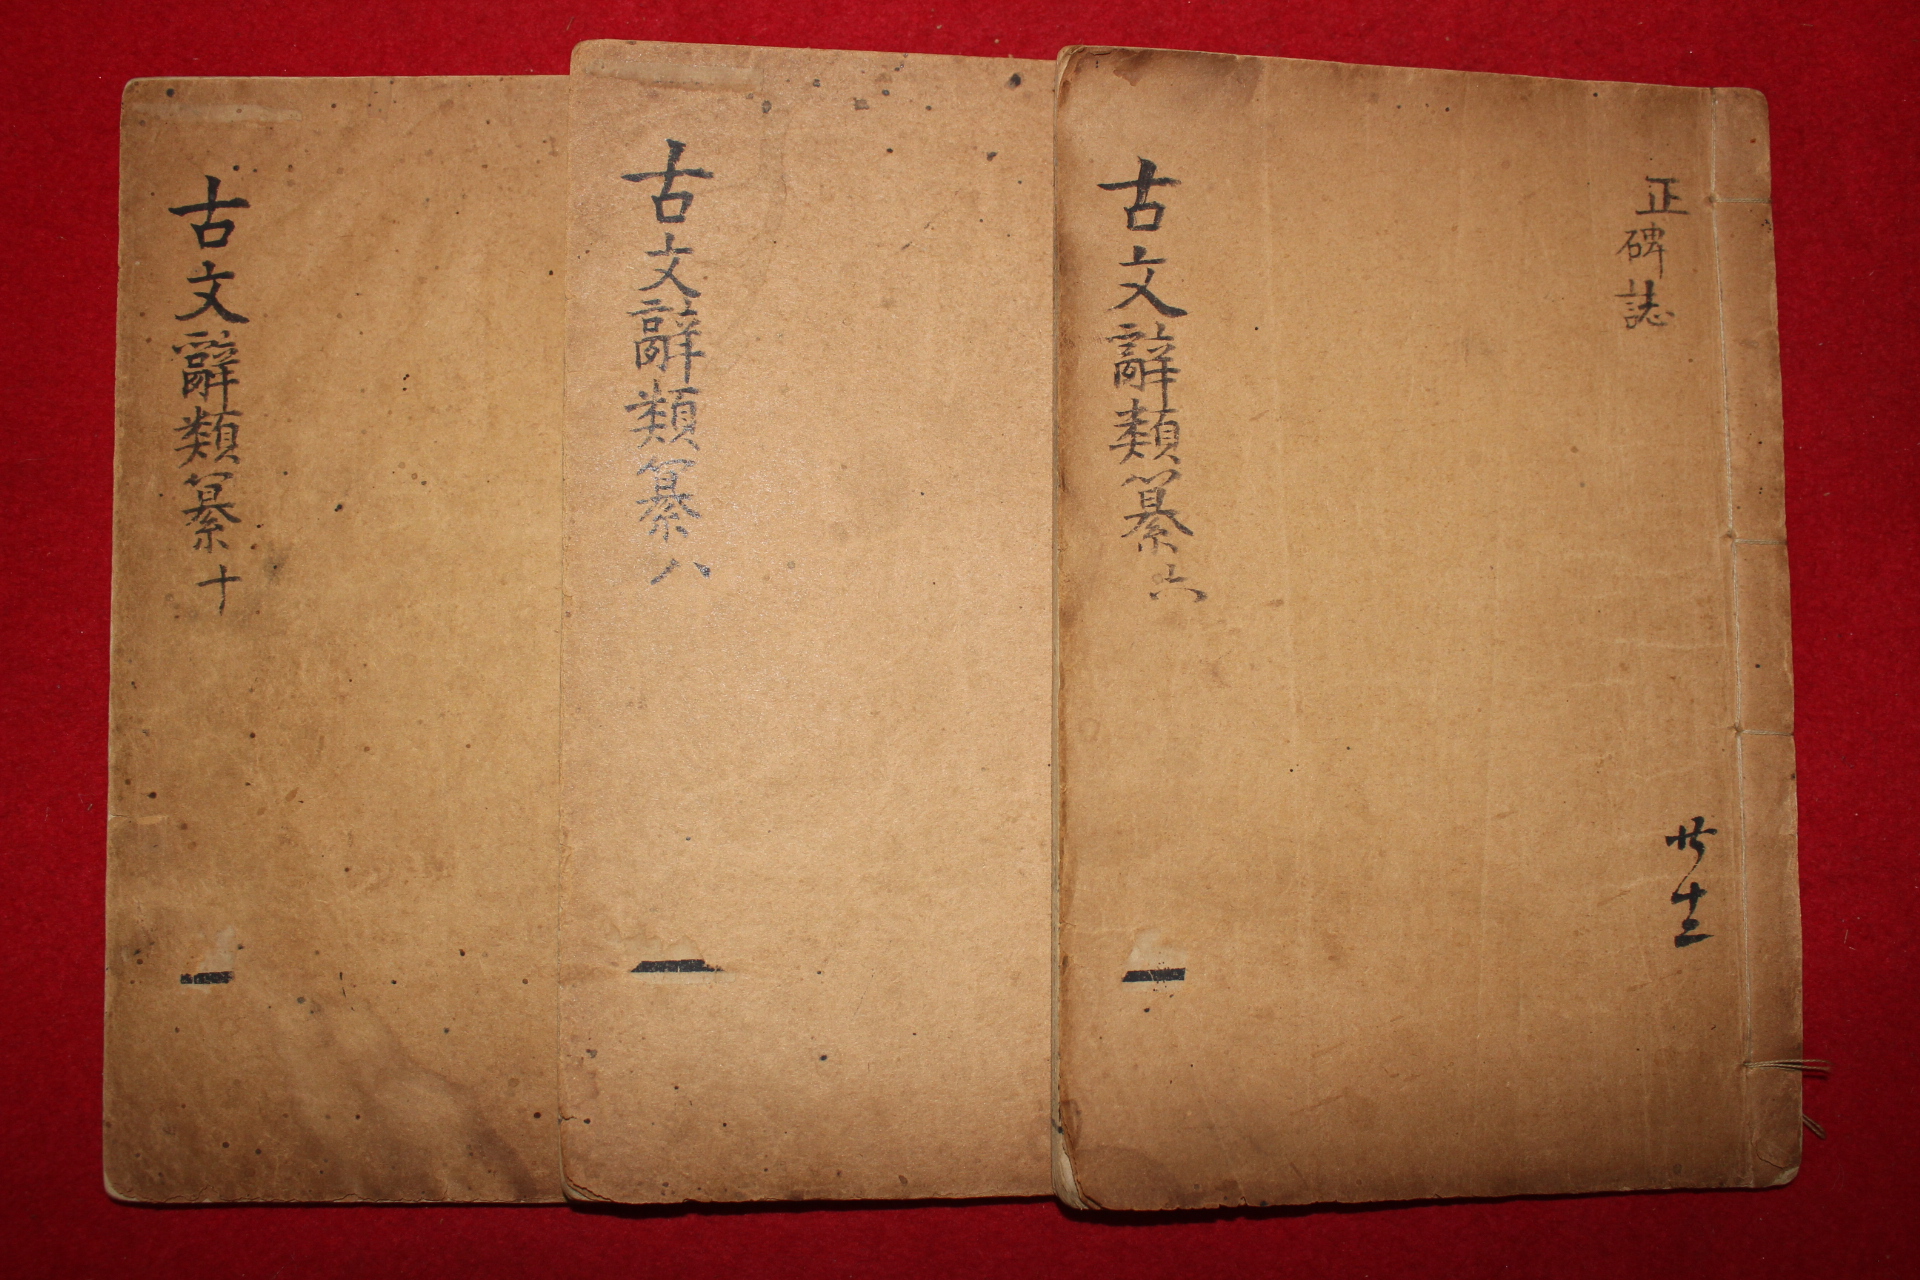 正碑誌
十三
古文辭類纂六
古文辭類纂八
古文辭類纂十